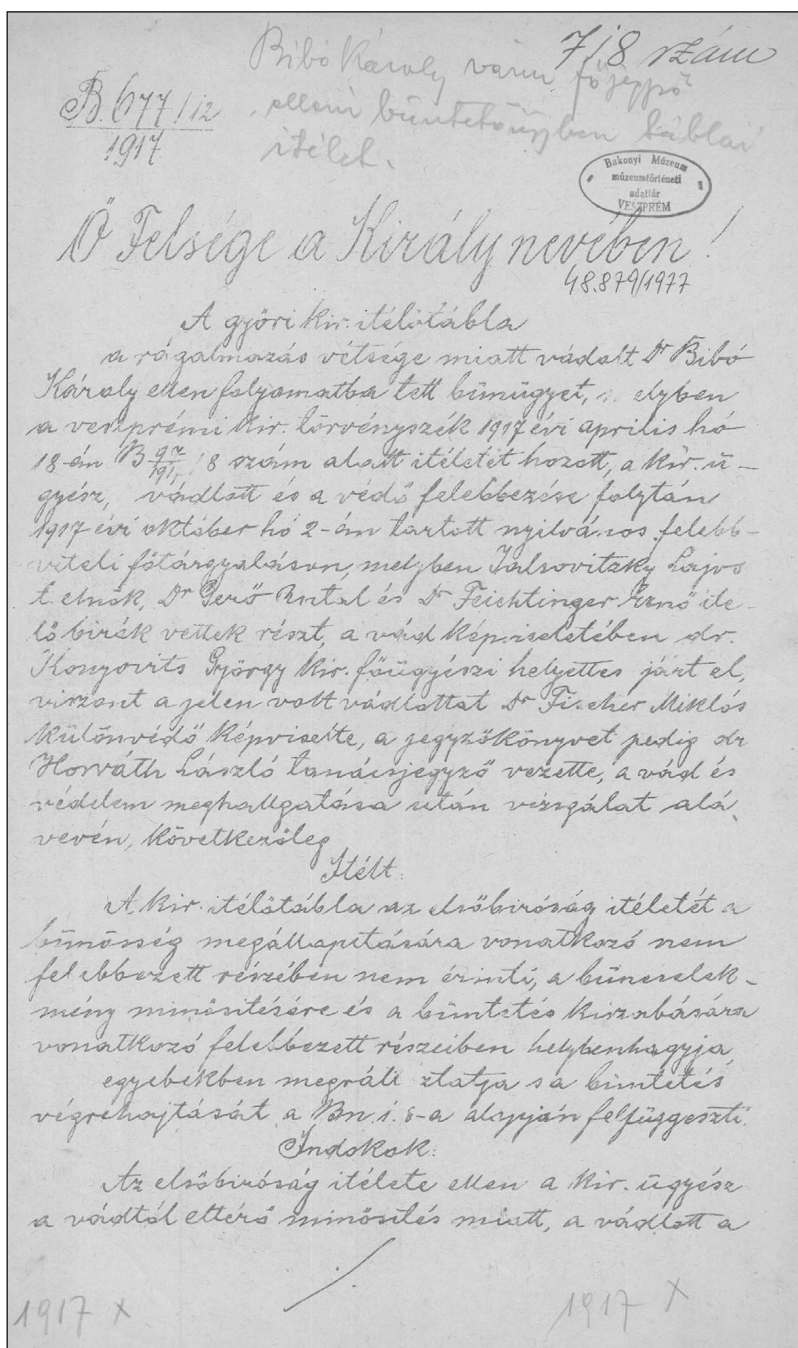 718 szám
Bibó Károly várm főjegyző
elleni büntetőügyben táblai
itélet.
B. 677/12
1917
Bakonyi Múzeum
múzeumtörténeti
adattár
VESZPRÉM
Ő Felsége a Király nevében!
48.879/1977
A győri kir. itélőtábla
a rágalmazás vétsége miatt vádolt Dr Bibó
Károly ellen folyamatba tett bünügyet, elyben
a veszprémi kir. törvényszék 1917 évi április hó
18-án B /8 szám alatt itéletet hozott, a kir. ü-
gyész, vádlott és a védő felebbezése folytán
1917 évi október hó 2-án tartott nyilvános felebb-
viteli főtárgyaláson, melyben Jalsovitzky Lajos
t. elnök, Dr Gerő Antal és Dr Feichtinger Ernő ité-
lő birák vettek részt, a vád képviseletében dr.
Konyovits György kir. főügyészi helyettes járt el,
viszont a jelen volt vádlottat Dr Fischer Miklós
különvédő képviselte, a jegyzőkönyvet pedig dr
Horváth László tanácsjegyző vezette, a vád és
védelem meghallgatása után vizsgálat alá
vevén, következőleg
Itélt:
A kir. itélőtábla az elsőbiróság itéletét a
bünösség megállapitására vonatkozó nem
felebbezett részében nem érinti, a büncselek-
mény minősitésére és a büntetés kiszabására
vonatkozó felebbezett részeiben helybenhagyja
egyebekben megváltoztatja s a büntetés
végrehajtását a Bn. 1. §-a alapján felfüggeszti.
Indokok:
Az elsőbiróság itélete ellen a kir. ügyész
a vádtól eltérő minősités miatt, a vádlott a
./.
1917 X
1917 X